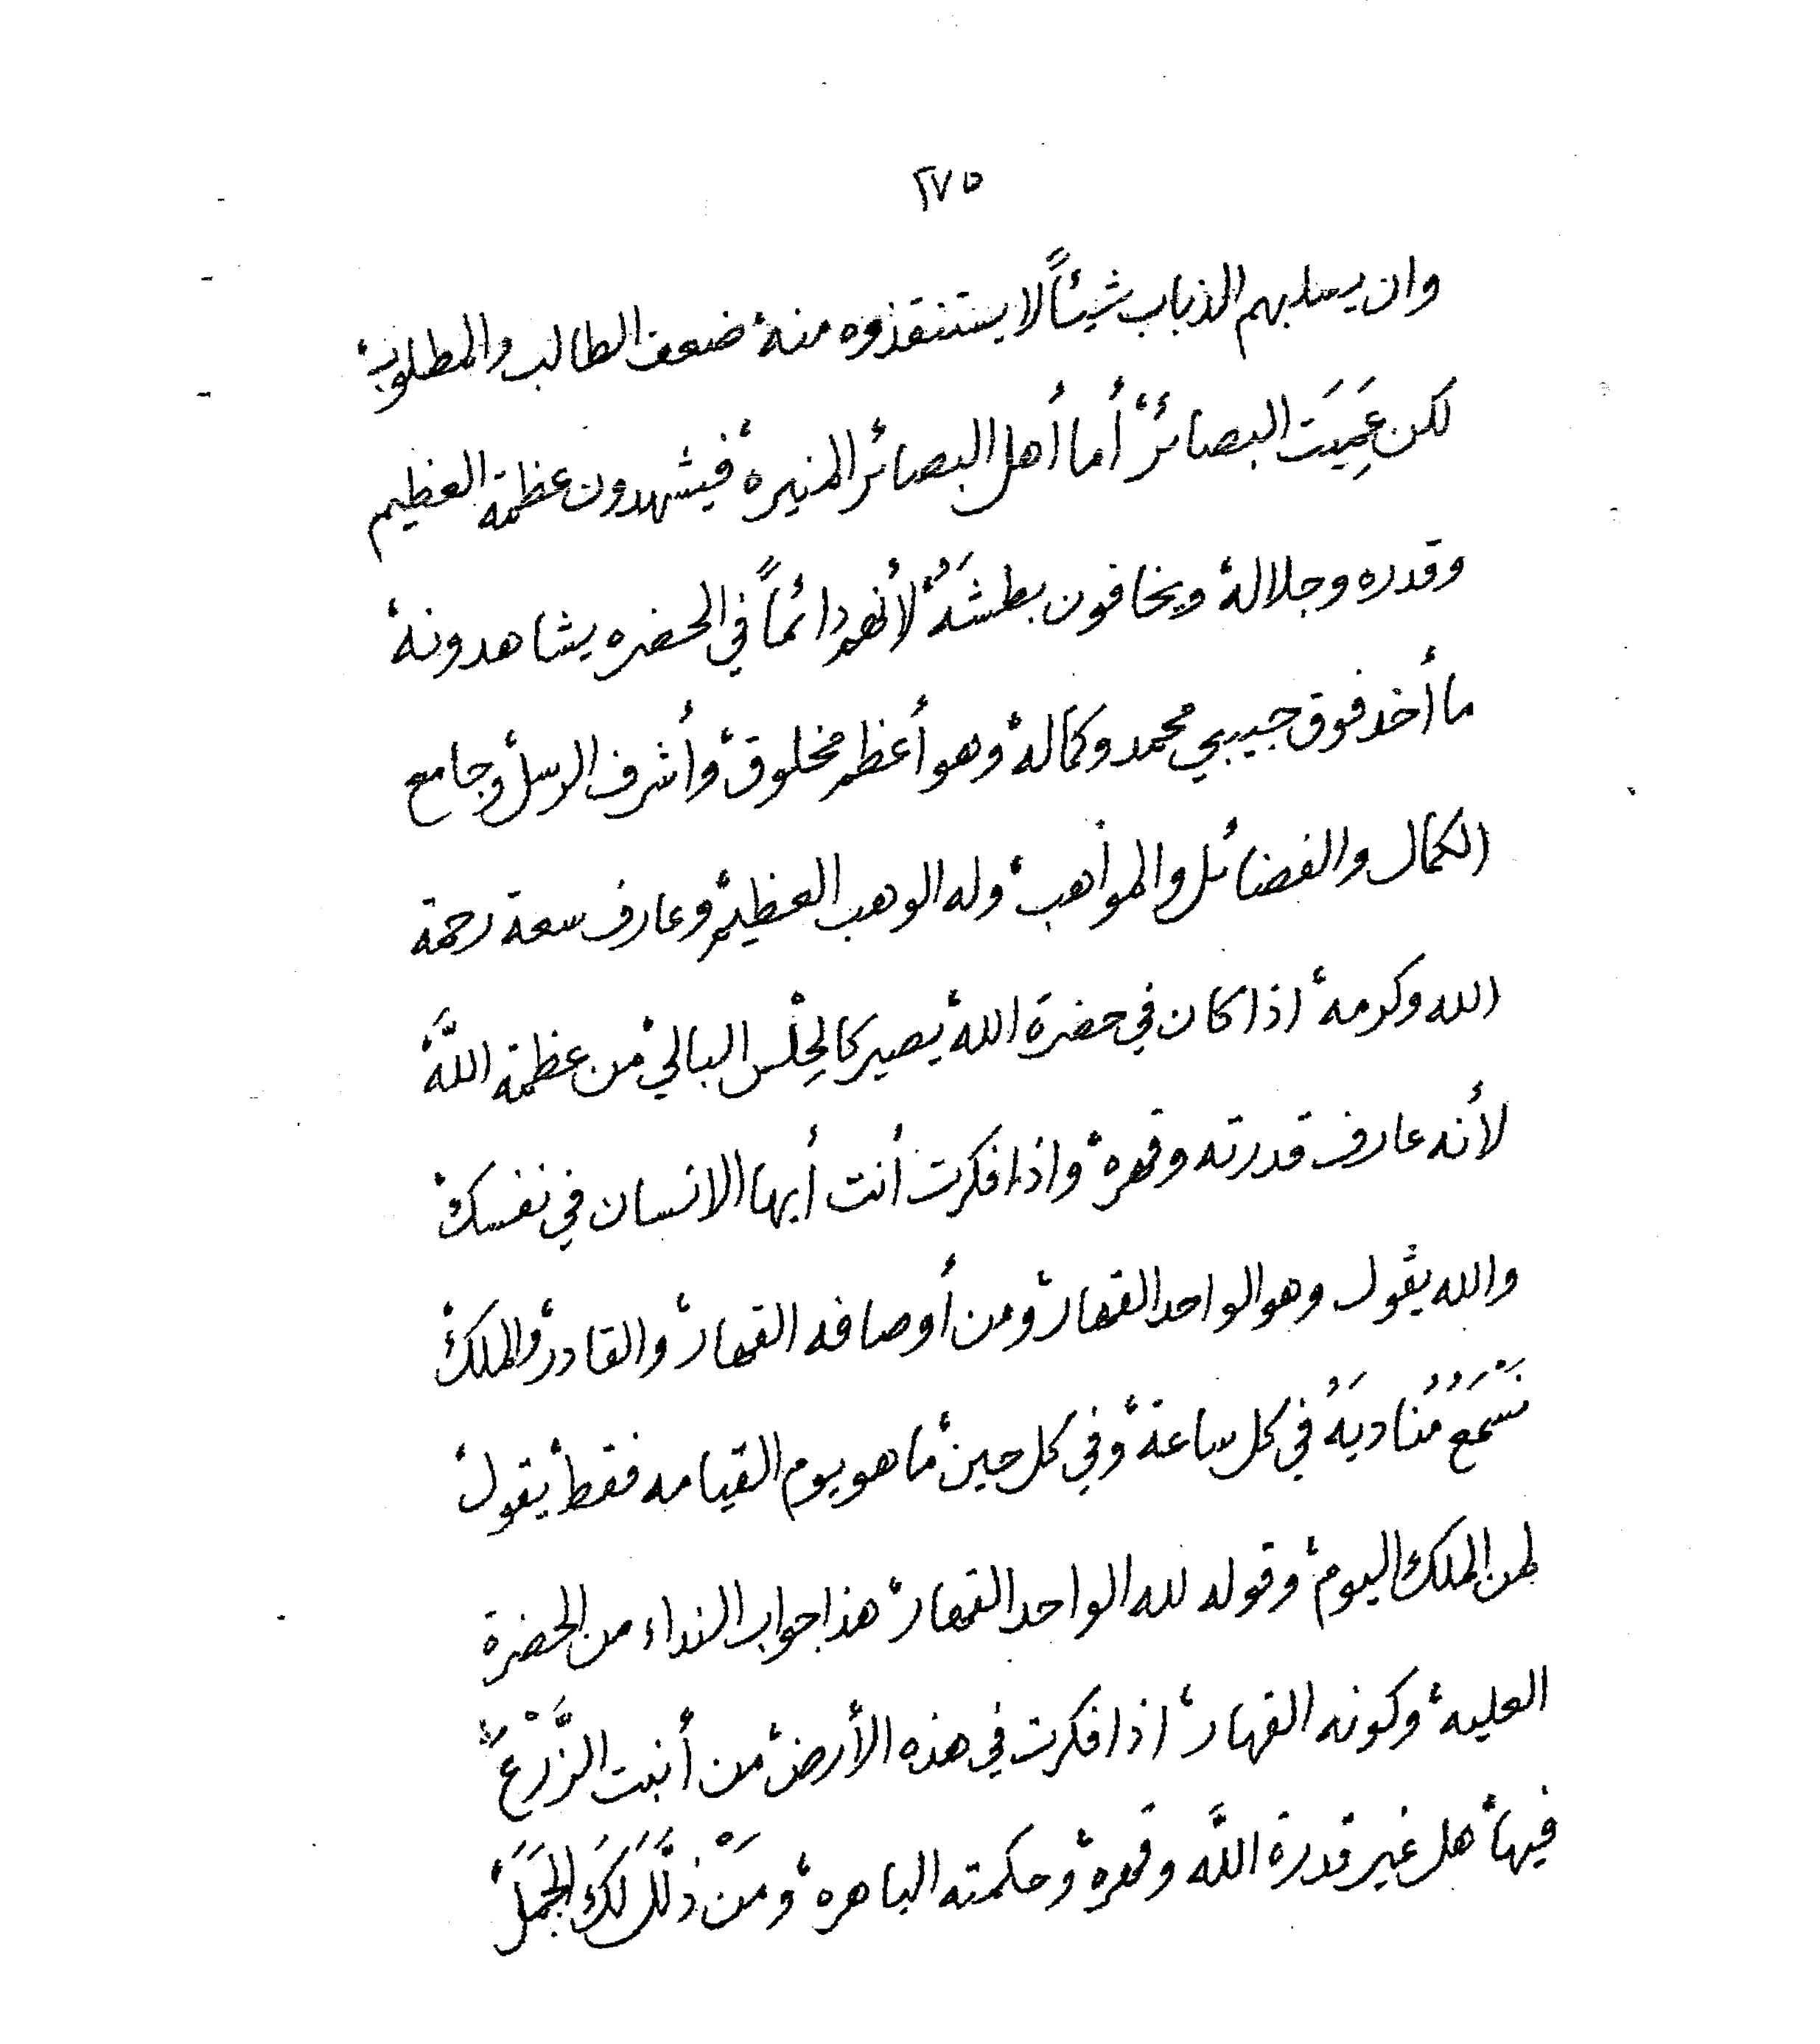 ٢٧٥
وان يسلبهم الذباب شيئاً لا يستنقذوه منه، ضعف الطالب والمطلوب،
لكن عَمِيَت البصائر، أما أهل البصائر المنيرة، فيشهدون عظمة العظيم
وقدره وجلاله، ويخافون بطشَهُ، لأنهم دائماً في الحضره يشاهدونه،
ما أحد فوق حبيبي محمد وكماله، وهو أعظم مخلوق، وأشرف الرسل، وجامع
الكمال والفضائل والمواهب، وله الوهب العظيم، وعارف سعة رحمة
الله وكرمه، اذا كان في حضرة الله، يصير كالحِلْس البالي، من عظمة اللَّه،
لأنه عارف قدرته وقهره، واذا فكرت أنت أيها الانسان في نفسك،
والله يقول وهو الواحد القهار، ومن أوصافه القهار، والقادر، والملك،
نَسْمَعُ مُنَاديَهُ في كل ساعة، وفي كل حين، ما هو يوم القيامه فقط، يقول،
لمن الملك اليوم، وقوله لله الواحد القهار، هذا جواب النداء من الحضرة
العليه، وكونه القهار، اذا فكرت في هذه الأرض، من أنبت الزَّرْعَ،
فيها، هل غير قدرة اللَّه وقهره، وحكمته الباهره، ومَنْ ذلَّلَ لَكَ الجَمَلَ،